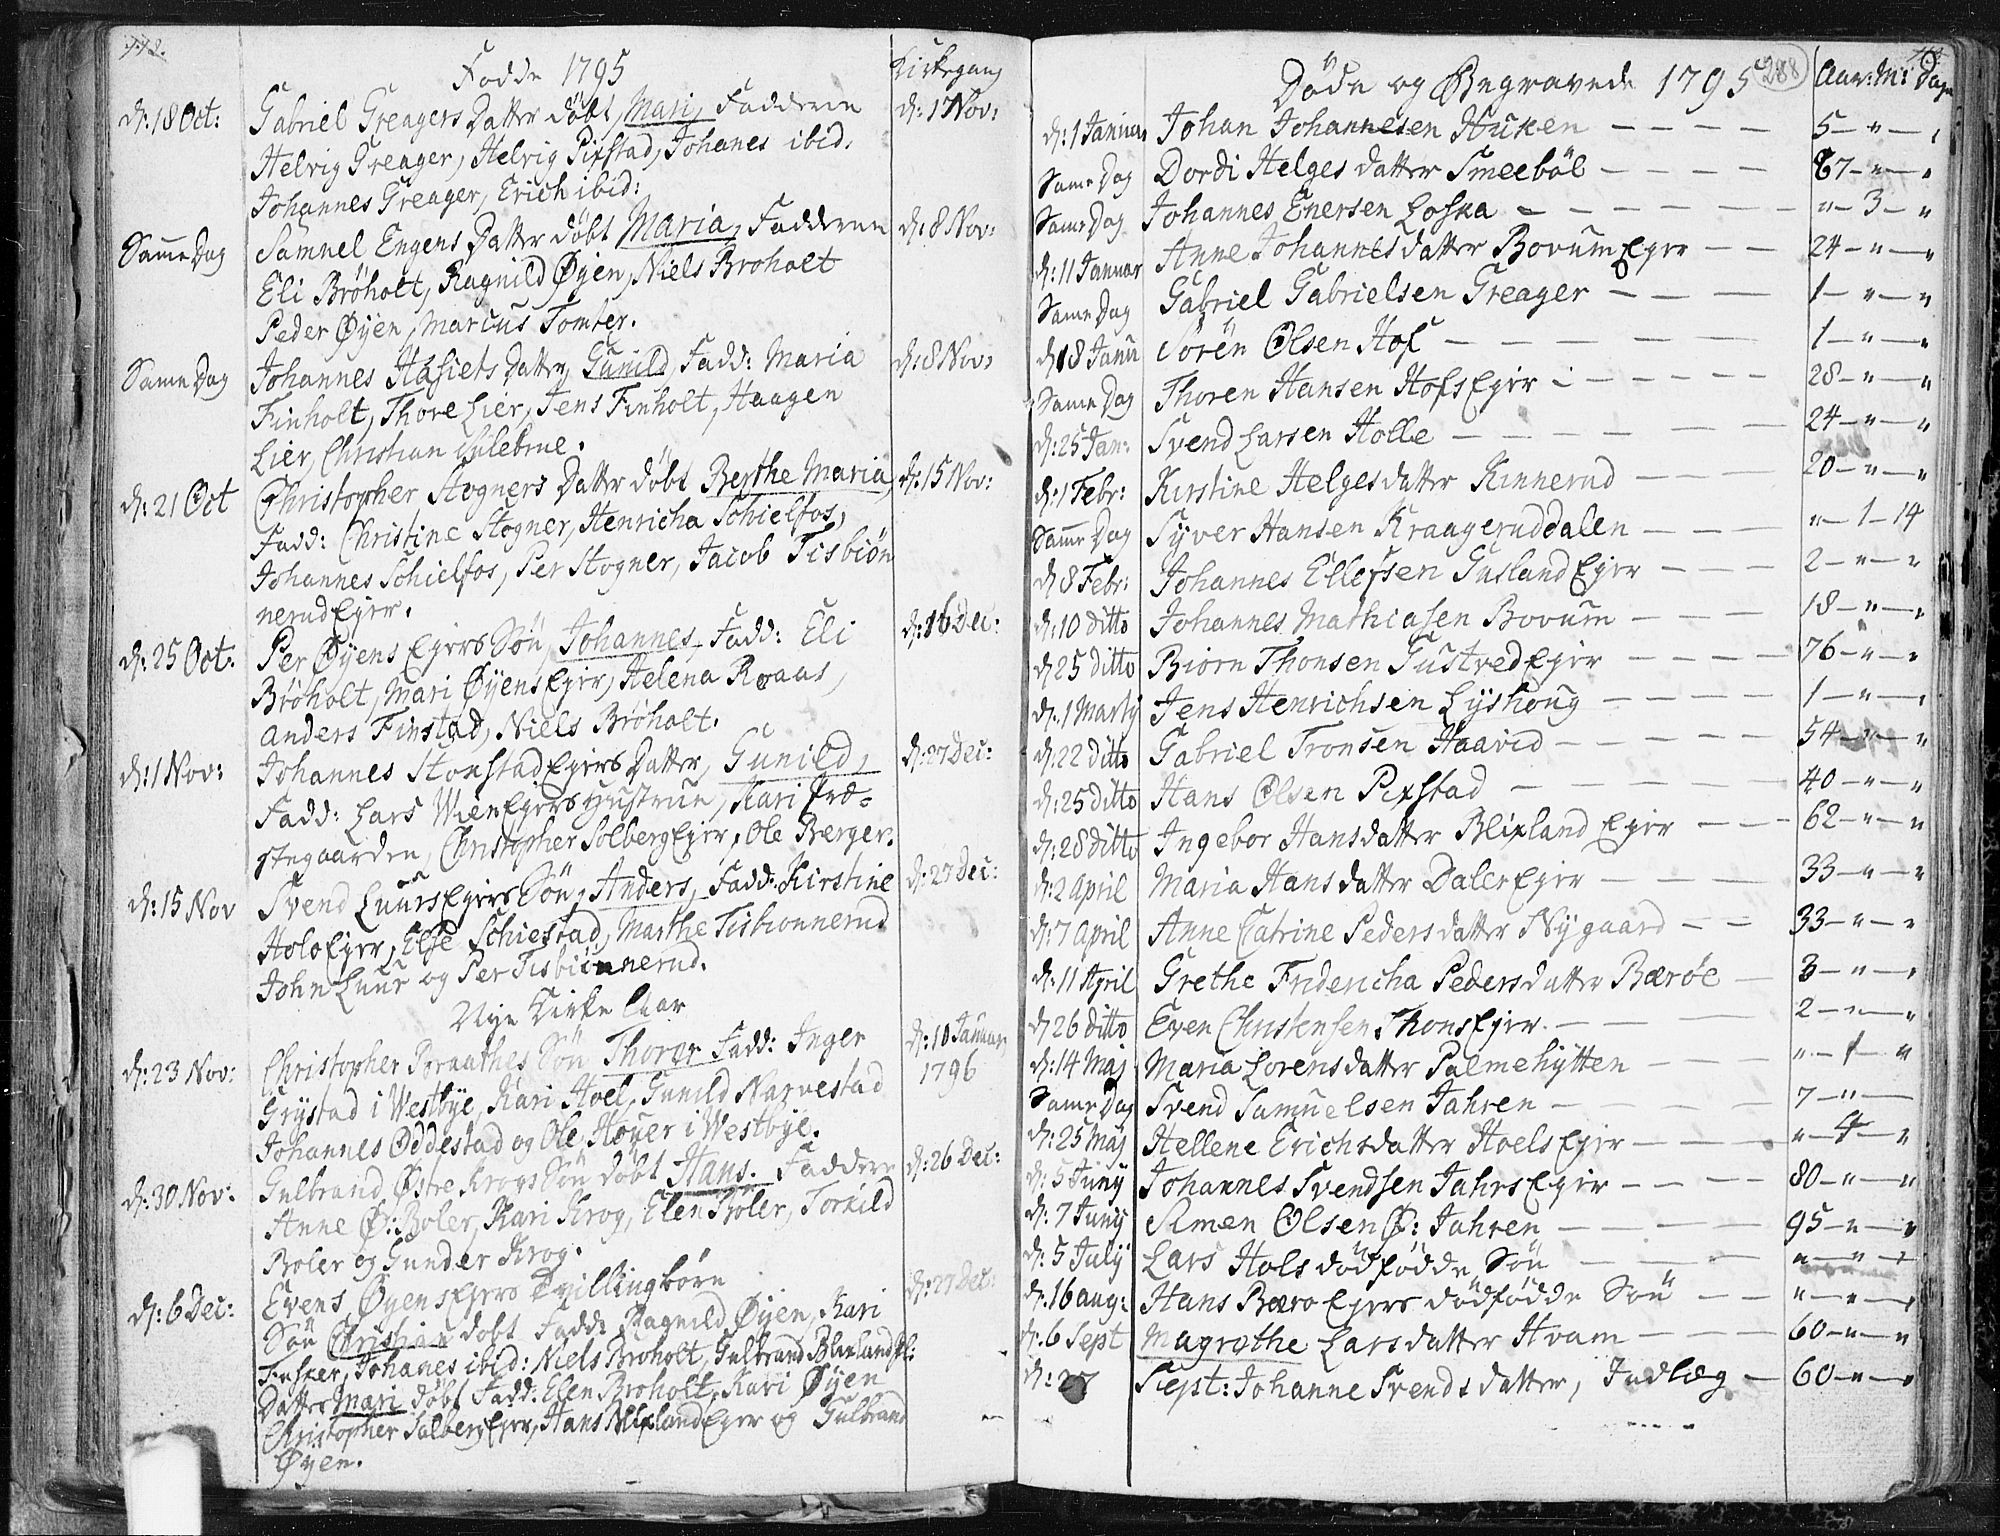 112.
Fødde 1795
Kirkegang
d: 18 Oct: Gabriel Greagers Datter döbt Mari, Fadderne d: 1 Nov:
Helvig Greager, Helvig Pixstad, Johanes ibid:
Johannes Greager, Erich ibid:
Same Dag Samuel Engens Datter döbt Maria, Fadderne d: 8 Nov:
Eli Bröholt, Ragnild Øyen, Niels Broholt
Peder Øyen, Marcus Tomter.
Same Dag Johannes Hasiets Datter, Gunild, Fadd: Maria d: 8 Nov:
Finholt, Thore Lier, Jens Finholt, Haagen
Lier, Christian
d: 21 Oct Christopher Stogners Datter döbt Berthe Maria, d: 15 Nov:
Fadd: Christine Stogner, Henricha Schielfos,
Johannes Schielfos, Per Stogner, Jacob Tisbiön
nerud Eier.
d: 25 Oct: Per Øyens Eiers Sön, Johannes, Fadd: Eli d: 16 Dec:
Bröholt, Mari Øyens Eier, Helena Roaas,
Anders Finstad, Niels Bröholt.
d: 1 Nov: Johannes Stonstad Eiers Datter, Gunild, d: 27 Dec:
Fadd: Lars Wien Eiers Hustrue, Kari Præ-
stegaarden, Christopher Solberg Eier, Ole Berger.
d: 15 Nov Svend Luurs Eiers Sön, Anders, Fadd: Kirstine d: 27 Dec:
Holo Eier, Else Schiestad, Marthe Tisbionnerud
John Luur og Per Tisbiönnerud.
Nye Kirke Aar
d: 23 Nov: Christopher Braathes Sön Thorer Fadd: Inger d: 10 Januar
Grÿstad i Westbÿe, Kari Hoel, Gunild Narvestad 1796
Johannes Oddestad og Ole Høyer i Westbÿe.
d: 30 Nov: Gulbrand Østre Krogs Sön döbt Hans. Faddere d: 26 Dec:
Anne Ø: Boler, Kari Krog, Elen Boler, Torkild
Boler og Gunder Krog.
d: 6 Dec: Evens Øyens Eiers Tvillingbörn d: 27 Dec:
Sön Christian döbt Fadd: Ragnild Øyen, Kari
Johanes ibid: Niels Broholt, Gulbrand Blixland
Datter Mari döbt Fadd: Elen Broholt, Kari Øyen
Christopher Solberg Eier, Hans Blixland Eier og Gulbrand
Øyen.
288
Døde og Begravede 1795 Aar: M: Dage
d: 1 Januar Johan Johannesen Huken 5 - " - "
Same Dag Dordi Helges datter Smeeböl 67 - " - "
Same Dag Johannes Enersen Loska " - 3 - "
d: 11 Januar Anne Johannes datter Bovum Eier 24 - " - "
Same Dag Gabriel Gabrielsen Greager 1 - " - "
d 18 Janu Sören Olsen Hof 1 - " - "
Same Dag Thoren Hansen Hofs Eier 28 - " - "
d: 25 Jan: Svend Larsen Holle 24 - " - "
d: 1 Febr: Kirstine Helges datter Kinnerud 20 - " - "
Same Dag Syver Hansen Kraagerud dalen " - 1 - 14
d 8 Febr: Johannes Ellefsen Gusland Eier 2 - " - "
d: 10 ditto Johannes Mathiasen Bovum 18 - " - "
d 25 ditto Biorn Thonsen Tustved Eier 76 - " - "
d: 1 Martÿ Jens Henrichsen Lÿshoug 1 - " - "
d: 22 ditto Gabriel Tronsen Haavid 54 - " - "
d: 25 ditto Hans Olsen Pixstad 40 - " - "
d: 28 ditto Ingebor Hansdatter Blixland Eier 62 - " - "
d: 2 April Maria Hans datter Daler Eier 33 - " - "
d: 7 April Anne Catrine Peders datter Nÿgaard 33 - " - "
d: 11 April Grethe Fridericha Peders datter Bærøe 3 - " - "
d 26 ditto Even Christensen Thons Eier 2 - " - "
d: 14 Maj Maria Lorens datter Palmehÿtten " - 1 - "
Same Dag Svend Samuelsen Jahren 7 - " -
d: 25 Maj Hellene Erichsdatter Hoels Eier " - 4 - "
d: 5 Junÿ Johannes Svendsen Jahrs Eier 80 - " - "
d: 7 Junÿ Simen Olsen Ø: Jahren 95 - " - "
d: 5 Julÿ Lars Hols dödfödde Sön " - " - "
d: 16 aug: Hans Bæro Eiers dödfødde Sön " - " - "
d: 6 Sept Magrethe Lars datter Hvam 60 - " - "
d: 27 Sept: Johanne Svends datter, Indlæg 60 - " - "